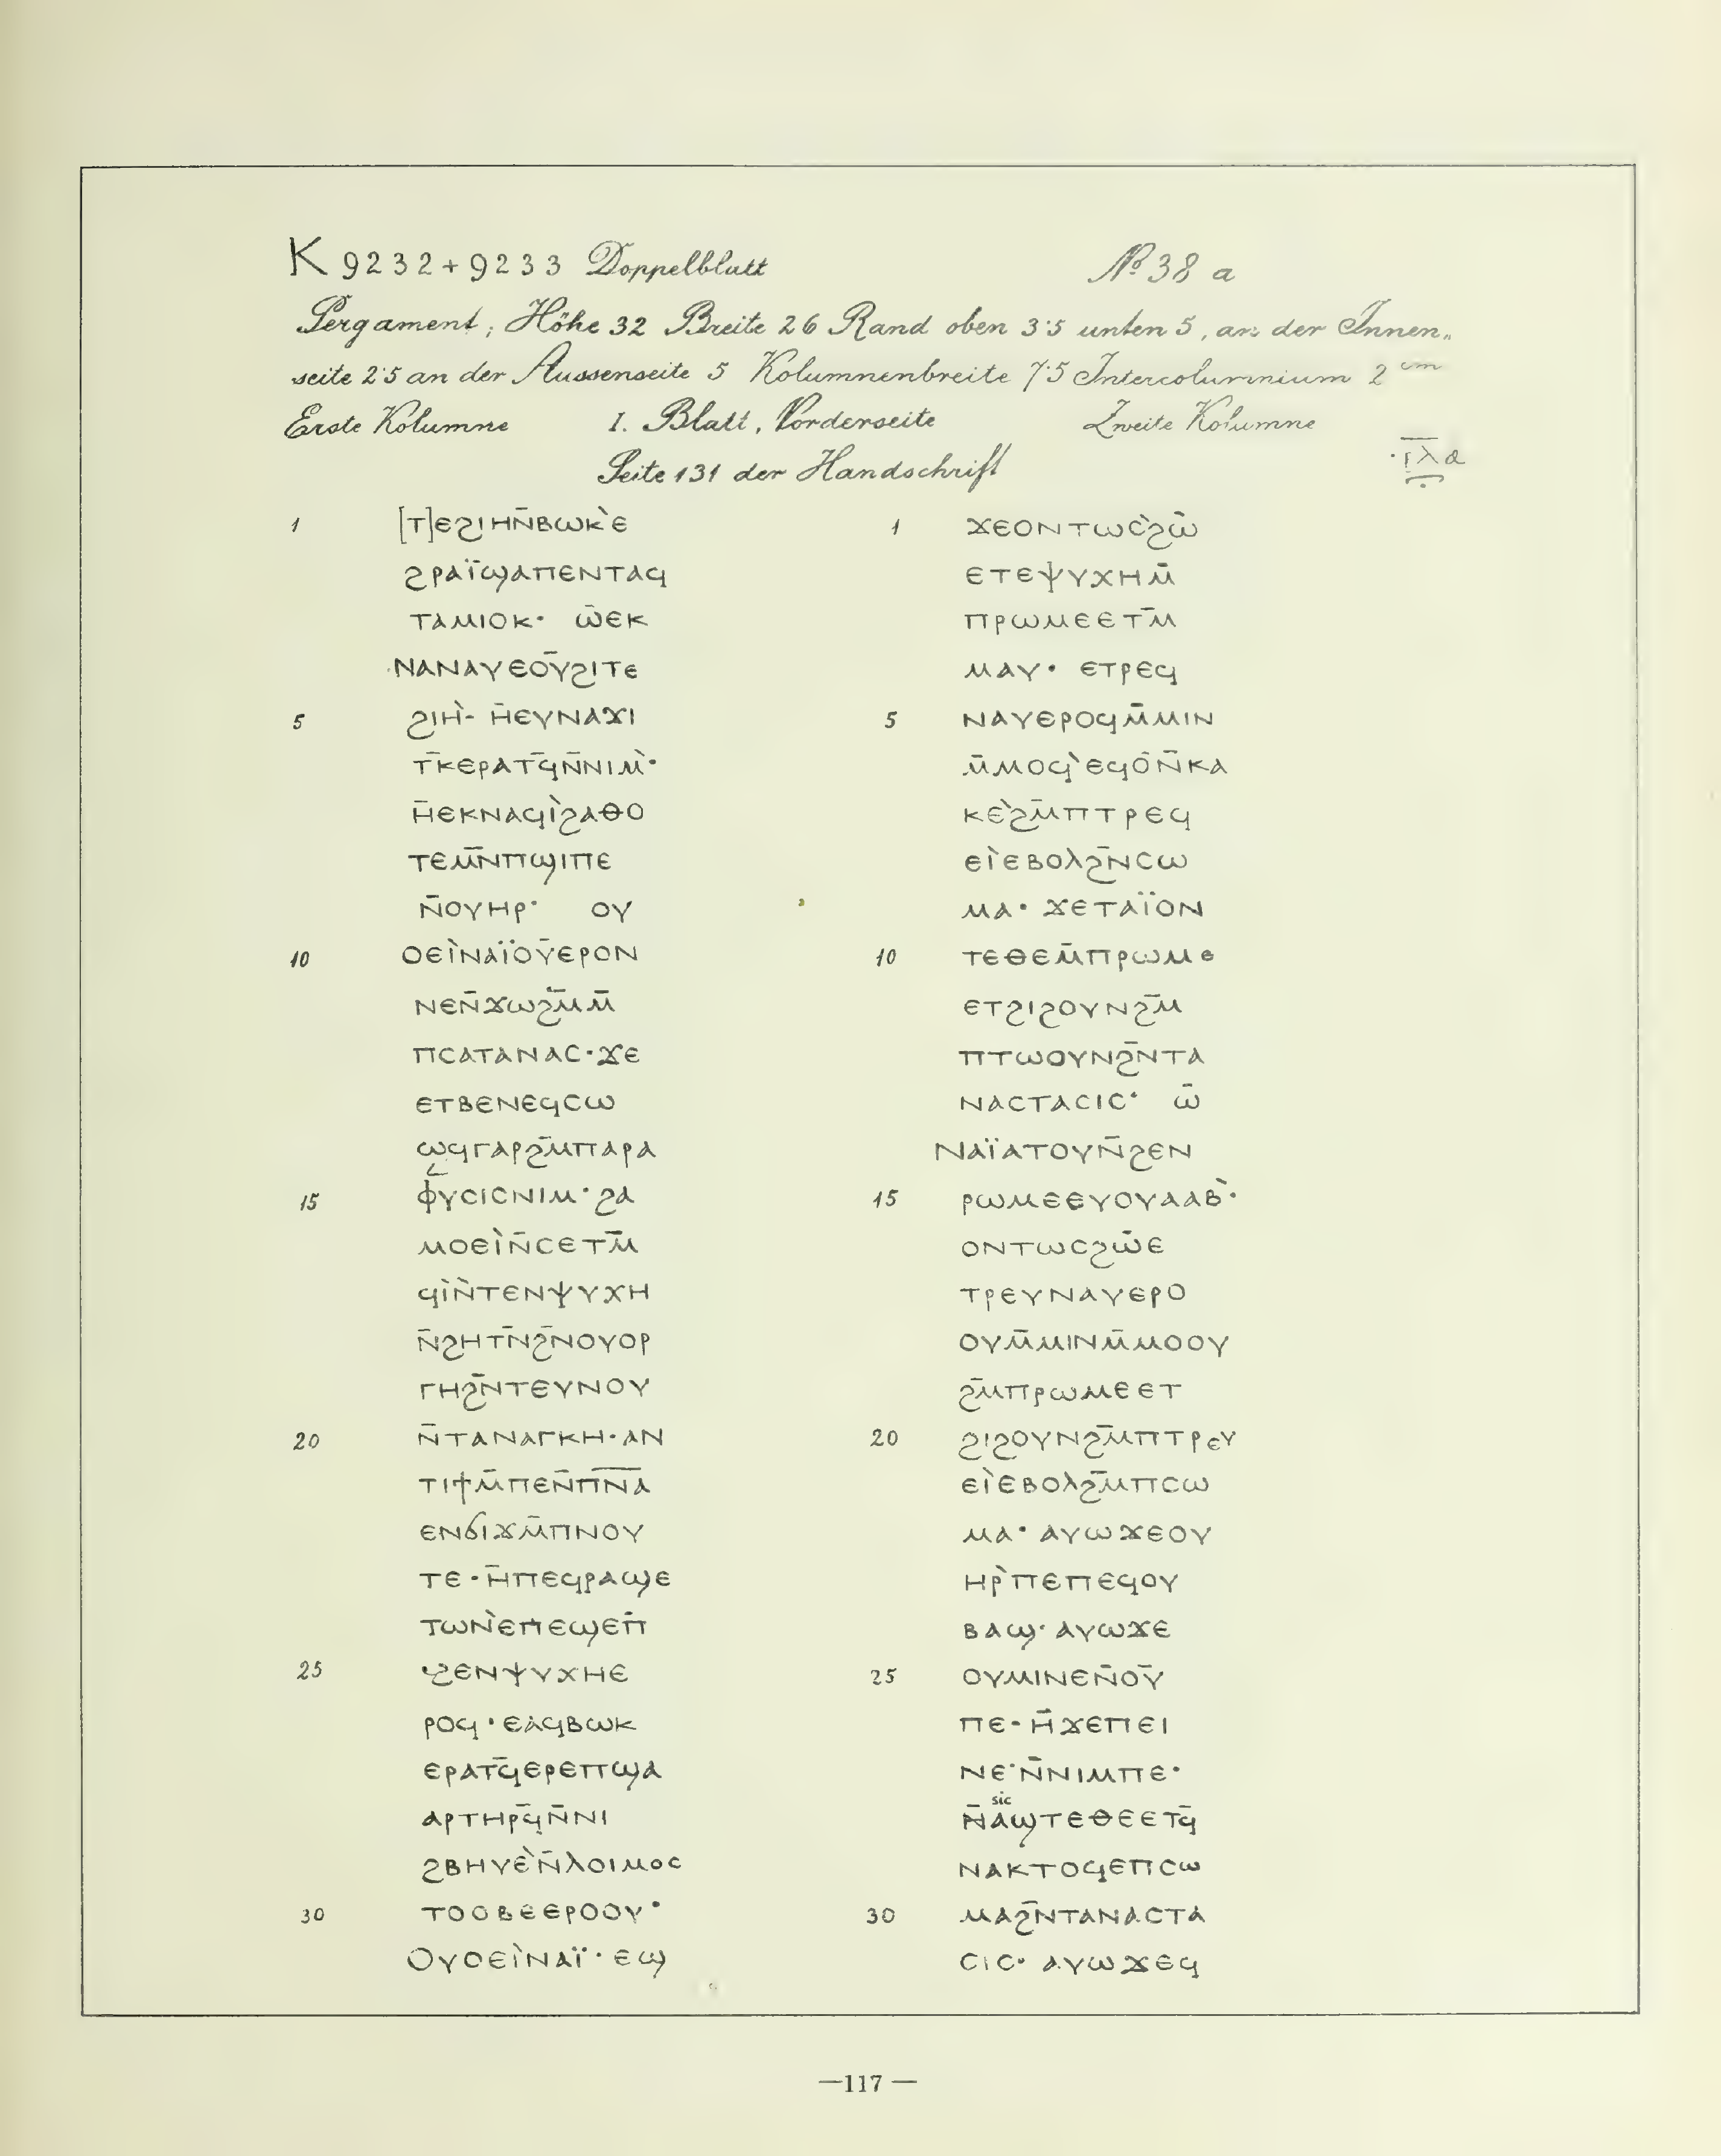 K 9232+9233 Doppelblatt № 38 a
Pergament; Höhe 32 Breite 26 Rand oben 3·5 unten 5, an der Innen-
seite 2·5 an der Aussenseite 5 Kolumnenbreite 7·5 Intercolumnium 2 cm
Erste Kolumne I. Blatt, Vorderseite Zweite Kolumne
Seite 131 der Handschrift ·ⲣ̅ⲗⲁ
1 [ⲧ]ⲉϩⲓⲏⲛ̄ⲃⲱⲕ̀ⲉ
ϩⲣⲁⲓ̈ϣⲁⲡⲉⲛⲧⲁϥ
ⲧⲁⲙⲓⲟⲕ· ⲱ̄ⲉⲕ
ⲛⲁⲛⲁⲩⲉⲟⲩ̄ϩⲓⲧⲉ
5 ϩⲓⲏ̀- ⲏ̄ⲉⲩⲛⲁϫⲓ
ⲧ̄ⲕⲉⲣⲁⲧϥ̄ⲛ̄ⲛⲓⲙ̀·
ⲏ̄ⲉⲕⲛⲁϥⲓ̀ϩⲁⲑⲟ
ⲧⲉⲙⲛ̄ⲡϣⲓⲡⲉ
ⲛ̄ⲟⲩⲏⲣ· ⲟⲩ
10 ⲟⲉⲓ̀ⲛⲁⲓ̈ⲟⲩ̄ⲉⲣⲟⲛ
ⲛⲉⲛ̄ϫⲱϩⲙ̄ⲙ̄
ⲡⲥⲁⲧⲁⲛⲁⲥ·ϫⲉ
ⲉⲧⲃⲉⲛⲉϥⲥⲱ
ⲱϥⲅⲁⲣϩⲙ̄ⲡⲁⲣⲁ
15 ⲫⲩⲥⲓⲥⲛⲓⲙ·ϩⲁ
ⲙⲟⲉⲓ̀ⲛ̄ⲥⲉⲧⲙ̄
ϥⲓ̀ⲛ̀ⲧⲉⲛⲯⲩⲭⲏ
ⲛ̄ϩⲏⲧⲛ̄ϩⲛ̄ⲟⲩⲟⲣ
ⲅⲏϩⲛ̄ⲧⲉⲩⲛⲟⲩ
20 ⲛ̄ⲧⲁⲛⲁⲅⲕⲏ·ⲁⲛ
ⲧⲓϯⲙ̄ⲡⲉⲛ̄ⲡ̅ⲛ̅ⲁ̅
ⲉⲛϭⲓϫⲙ̄ⲡⲛⲟⲩ
ⲧⲉ·ⲏ̄ⲡⲉϥⲣⲁϣⲉ
ⲧⲱⲛ̀ⲉⲡⲉϣⲉⲡ̄
25 ϩⲉⲛⲯⲩⲭⲏⲉ
ⲣⲟϥ·ⲉⲁϥⲃⲱⲕ
ⲉⲣⲁⲧϥ̄ⲉⲣⲉⲡϣⲁ
ⲁⲣⲧⲏⲣϥ̄ⲛ̄ⲛⲓ
ϩⲃⲏⲩⲉ̀ⲛ̄ⲗⲟⲓⲙⲟⲥ
30 ⲧⲟⲟⲃⲉⲉⲣⲟⲟⲩ·
ⲟⲩⲟⲉⲓ̀ⲛⲁⲓ̈·ⲉϣ
1 ϫⲉⲟⲛⲧⲱⲥ̀ϩⲱ̄
ⲉⲧⲉⲯⲩⲭⲏⲙ̄
ⲡⲣⲱⲙⲉⲉⲧⲙ̄
ⲙⲁⲩ· ⲉⲧⲣⲉϥ
5 ⲛⲁⲩⲉⲣⲟϥⲙ̄ⲙⲓⲛ
ⲙ̄ⲙⲟϥ̀ⲉϥⲟ̄ⲛ̄ⲕⲁ
ⲕⲉ̀ϩⲙ̄ⲡⲧⲣⲉϥ
ⲉⲓ̀ⲉⲃⲟⲗϩⲛ̄ⲥⲱ
ⲙⲁ· ϫⲉⲧⲁⲓ̈ⲟⲛ
10 ⲧⲉⲑⲉⲙ̄ⲡⲣⲱⲙⲉ
ⲉⲧϩⲓϩⲟⲩⲛϩⲙ̄
ⲡⲧⲱⲟⲩⲛϩⲛ̄ⲧⲁ
ⲛⲁⲥⲧⲁⲥⲓⲥ· ⲱ̄
ⲛⲁⲓ̈ⲁⲧⲟⲩⲛ̄ϩⲉⲛ
15 ⲣⲱⲙⲉⲉⲩⲟⲩⲁⲁⲃ̀·
ⲟⲛⲧⲱⲥϩⲱ̄ⲉ
ⲧⲣⲉⲩⲛⲁⲩⲉⲣⲟ
ⲟⲩⲙ̄ⲙⲓⲛⲙ̄ⲙⲟⲟⲩ
ϩⲙ̄ⲡⲣⲱⲙⲉⲉⲧ
20 ϩⲓϩⲟⲩⲛϩⲙ̄ⲡⲧⲣⲉⲩ
ⲉⲓ̀ⲉⲃⲟⲗϩⲙ̄ⲡⲥⲱ
ⲙⲁ· ⲁⲩⲱϫⲉⲟⲩ
ⲏⲣ̀ⲡⲉⲡⲉϥⲟⲩ
ⲃⲁϣ· ⲁⲩⲱϫⲉ
25 ⲟⲩⲙⲓⲛⲉⲛ̄ⲟⲩ̄
ⲡⲉ·ⲏ̄ϫⲉⲡⲉⲓ
ⲛⲉ·ⲛ̄ⲛⲓⲙⲡⲉ·
sic
ⲏ̄ⲁϣⲧⲉⲑⲉⲉⲧϥ̄
ⲛⲁⲕⲧⲟϥⲉⲡⲥⲱ
30 ⲙⲁϩⲛ̄ⲧⲁⲛⲁⲥⲧⲁ
ⲥⲓⲥ· ⲁⲩⲱϫⲉϥ
—117—